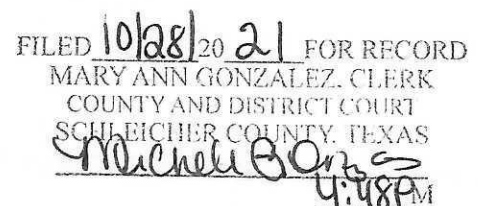 FILED 10/28/20 21 FOR RECORD
MARY ANN GONZALEZ, CLERK
COUNTY AND DISTRICT COURT
SCHLEICHER COUNTY, TEXAS
4:48PM